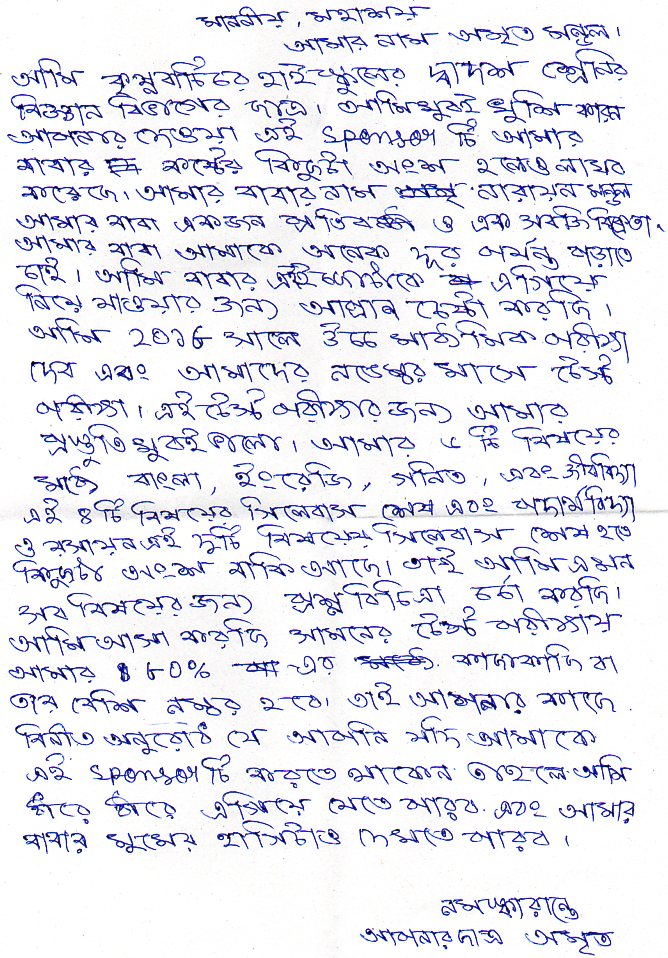 মাননীয়, মহাশয়
আমার নাম অমৃত মন্ডল।
আমি কৃষ্ণবাটি হাইস্কুলের দ্বাদশ শ্রেনির
বিজ্ঞান বিভাগের ছাত্র। আমি খুবই খুশি কারন
আপনার দেওয়া এই sponsor টি আমার
বাবার কষ্টের কিছুটা অংশ হলেও লাঘব
করেছে। আমার বাবার নাম নারায়ন মন্ডল
আমার বাবা একজন প্রতিবন্ধী ও এক সবজি বিক্রেতা।
আমার বাবা আমাকে অনেক দূর পর্যন্ত পড়াতে
চাই। আমি বাবার এই এগিয়ে
নিয়ে যাওয়ার জন্য আপ্রান চেষ্টা করছি।
আমি 2016 সালে উচ্চ মাধ্যমিক পরীক্ষা
দেব এবং আমাদের নভেম্বর মাসে টেস্ট
পরীক্ষা। এই টেস্ট পরীক্ষার জন্য আমার
প্রস্তুতি খুবই ভালো। আমার ৬ টি বিষয়ের
মধ্যে বাংলা, ইংরেজি, গনিত, এবং জীববিদ্যা
এই ৪টি বিষয়ের সিলেবাস শেষ এবং পদার্থবিদ্যা
ও রসায়ন এই দুটি বিষয়ের সিলেবাস শেষ হতে
কিছুটা অংশ বাকি আছে। তাই আমি এখন
সব বিষয়ের জন্য প্রশ্ন বিচিত্রা চর্চা করছি।
আমি আশা করছি সামনের টেস্ট পরীক্ষায়
আমার 60% এর কাছাকাছি বা
তার বেশি নম্বর হবে। তাই আপনার কাছে
বিনীত অনুরোধ যে আপনি যদি আমাকে
এই sponsor টি করতে থাকেন তাহলে আমি
ধীরে ধীরে এগিয়ে যেতে পারব এবং আমার
বাবার মুখের হাসিটাও দেখতে পারব।
নমস্কারান্তে
আপনার ছাত্র অমৃত